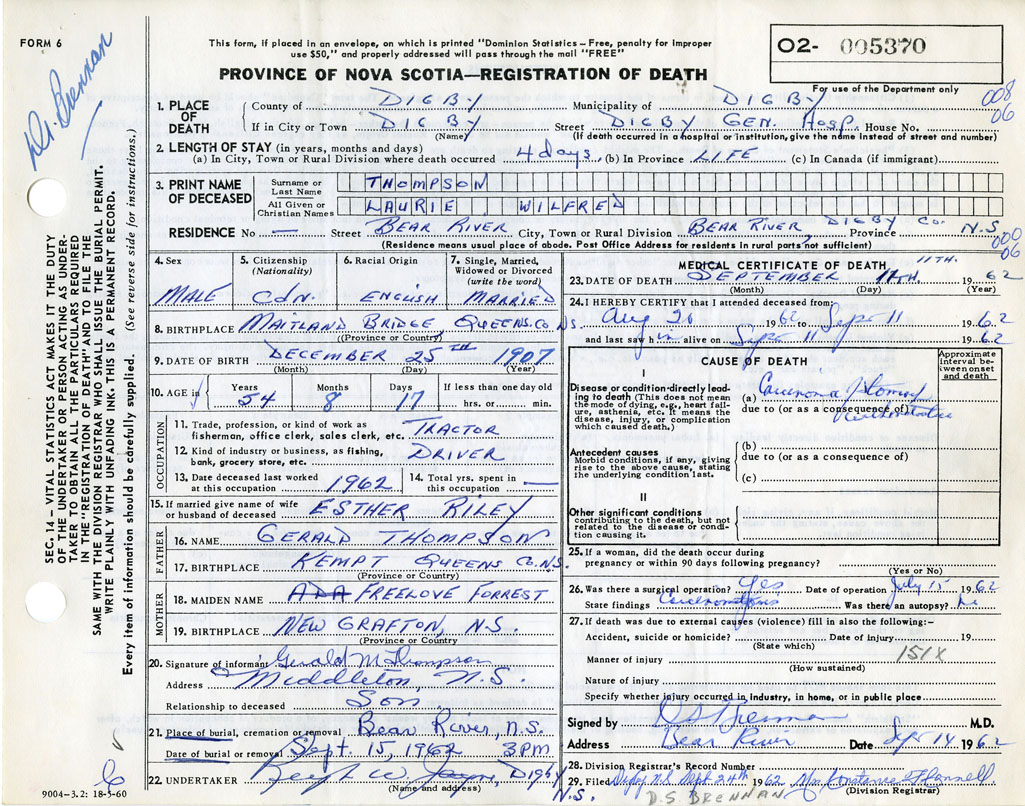 FORM 6
Dr. Brennan
This form, if placed in an envelope, on which is printed "Dominion Statistics – Free, penalty for improper
use $50," and properly addressed will pass through the mail "FREE"
PROVINCE OF NOVA SCOTIA—REGISTRATION OF DEATH
O2- 005370
For use of the Department only
008
06
1. PLACE OF DEATH
County of DIGBY Municipality of DIGBY
If in City or Town DIGBY Street DIGBY GEN. HOSP. House No.
(Name) (If death occurred in a hospital or institution, give the name instead of street and number)
2. LENGTH OF STAY (in years, months and days)
(a) In City, Town or Rural Division where death occurred 4 days (b) In Province LIFE (c) In Canada (if immigrant)
3. PRINT NAME OF DECEASED
Surname or Last Name THOMPSON
All Given or Christian Names LAURIE WILFRED
RESIDENCE No — Street BEAR RIVER City, Town or Rural Division BEAR RIVER, DIGBY CO. Province N.S.
(Residence means usual place of abode. Post Office Address for residents in rural parts, not sufficient)
000
06
4. Sex MALE
5. Citizenship (Nationality) CDN.
6. Racial Origin ENGLISH
7. Single, Married, Widowed or Divorced (write the word) MARRIED
8. BIRTHPLACE MAITLAND BRIDGE, QUEENS. CO N.S.
(Province or Country)
9. DATE OF BIRTH DECEMBER 25TH 1907
(Month) (Day) (Year)
10. AGE in Years 54 Months 8 Days 17 If less than one day old hrs. or min.
OCCUPATION
11. Trade, profession, or kind of work as fisherman, office clerk, sales clerk, etc. TRACTOR
12. Kind of industry or business, as fishing, bank, grocery store, etc. DRIVER
13. Date deceased last worked at this occupation 1962
14. Total yrs. spent in this occupation —
15. If married give name of wife or husband of deceased ESTHER RILEY
FATHER
16. NAME GERALD THOMPSON
17. BIRTHPLACE KEMPT QUEENS CO. N.S.
(Province or Country)
MOTHER
18. MAIDEN NAME ADA FREELOVE FORREST
19. BIRTHPLACE NEW GRAFTON, N.S.
(Province or Country)
20. Signature of informant Gerald M Thompson
Address Middleton, N.S.
Relationship to deceased Son
21. Place of burial, cremation or removal Bear River, N.S.
Date of burial or removal Sept. 15, 1962 3 PM
22. UNDERTAKER W. Digby
N.S.
(Name and address)
MEDICAL CERTIFICATE OF DEATH
23. DATE OF DEATH SEPTEMBER 11TH. 11TH. 1962
(Month) (Day) (Year)
24. I HEREBY CERTIFY that I attended deceased from:
Aug 20 1962 to Sept 11 1962
and last saw him alive on Sept 11 1962
CAUSE OF DEATH
Approximate interval between onset and death
I
Disease or condition directly leading to death (This does not mean the mode of dying, e.g., heart failure, asthenia, etc. It means the disease, injury, or complication which caused death.)
(a) Carcinoma
due to (or as a consequence of)
Antecedent causes
Morbid conditions, if any, giving rise to the above cause, stating the underlying condition last.
(b)
due to (or as a consequence of)
(c)
II
Other significant conditions
contributing to the death, but not related to the disease or condition causing it.
25. If a woman, did the death occur during
pregnancy or within 90 days following pregnancy?
(Yes or No)
26. Was there a surgical operation? Yes Date of operation July 15 1962
State findings Was there an autopsy?
27. If death was due to external causes (violence) fill in also the following:–
Accident, suicide or homicide? Date of injury 19
(State which)
151X
Manner of injury
(How sustained)
Nature of injury
Specify whether injury occurred in industry, in home, or in public place
Signed by D S Brennan M.D.
Address Bear River Date Sept 14 1962
28. Division Registrar's Record Number
29. Filed Digby N.S. Sept 24th 1962 Mrs Constance
(Division Registrar)
D.S. BRENNAN
SEC. 14 – VITAL STATISTICS ACT MAKES IT THE DUTY
OF THE UNDERTAKER OR PERSON ACTING AS UNDER-
TAKER TO OBTAIN ALL THE PARTICULARS REQUIRED
IN THE "REGISTRATION OF DEATH" AND TO FILE THE
SAME WITH THE DIVISION REGISTRAR WHO SHALL ISSUE THE BURIAL PERMIT.
WRITE PLAINLY WITH UNFADING INK. THIS IS A PERMANENT RECORD.
Every item of information should be carefully supplied. (See reverse side for instructions.)
9004–3.2: 18-5-60